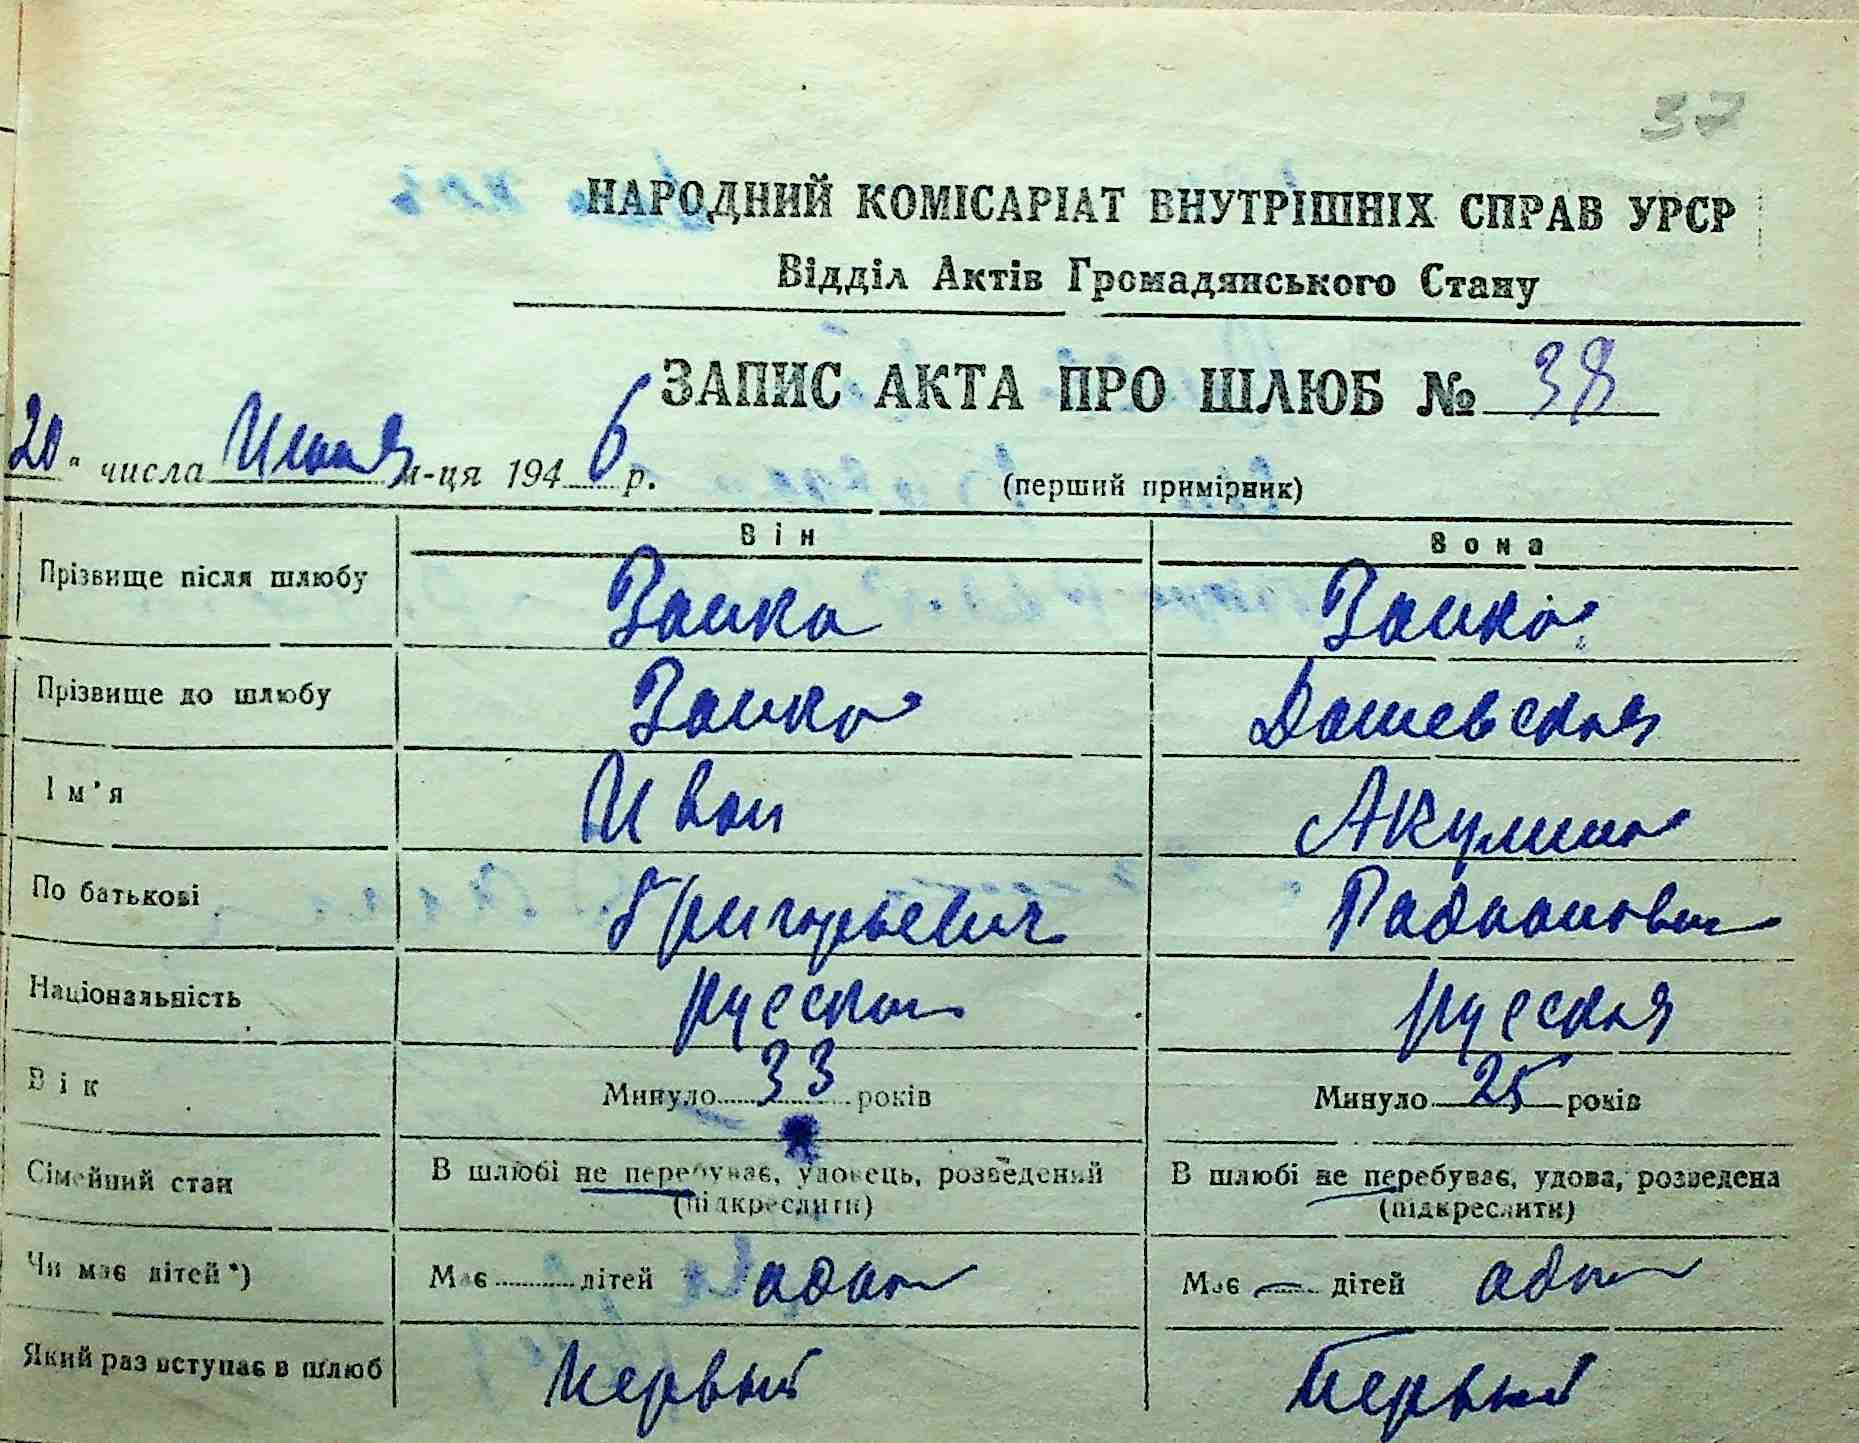 37
НАРОДНИЙ КОМІСАРІАТ ВНУТРІШНІХ СПРАВ УРСР
Відділ Актів Громадянського Стану
ЗАПИС АКТА ПРО ШЛЮБ № 38
20 " числа м-ця 1946 р. (перший примірник)
Він Вона
Прізвище після шлюбу Заика Заика
Прізвище до шлюбу Заика Дашевская
Ім'я Иван Акулина
По батькові Григорьевич
Національність русский русская
Вік Минуло 33 років Минуло 25 років
Сімейний стан В шлюбі не перебуває, удовець, розведений В шлюбі не перебуває, удова, розведена
(підкреслити) (підкреслити)
Чи має дітей *) Має дітей Має — дітей
Який раз вступає в шлюб Первый Первый